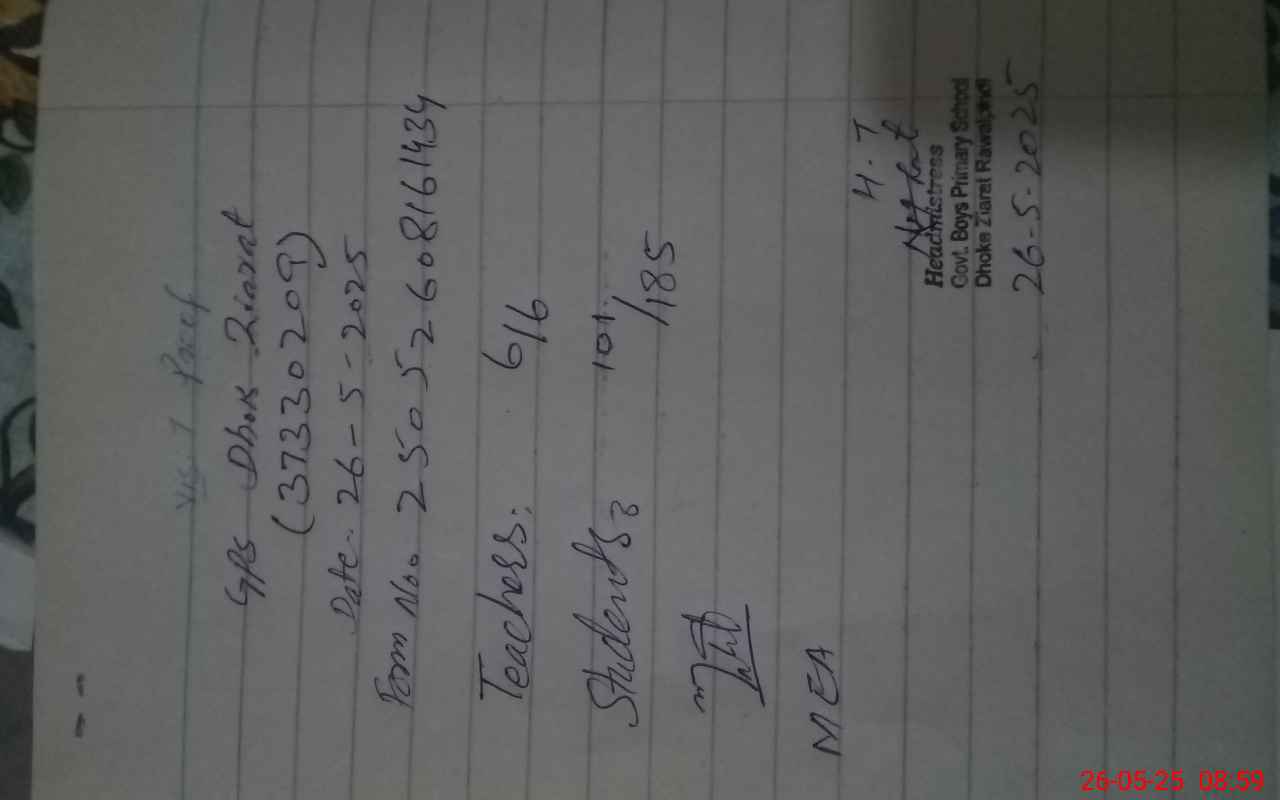 Visit Proof
GPS Dhok Ziarat
(37330209)
Date:- 26-5-2025
Form No. 25052608161434
Teachers: 6/6
Students: 101/185
MEA
H.T
Headmistress
Govt. Boys Primary School
Dhoke Ziarat Rawalpindi
26-5-2025
26-05-25 08:59